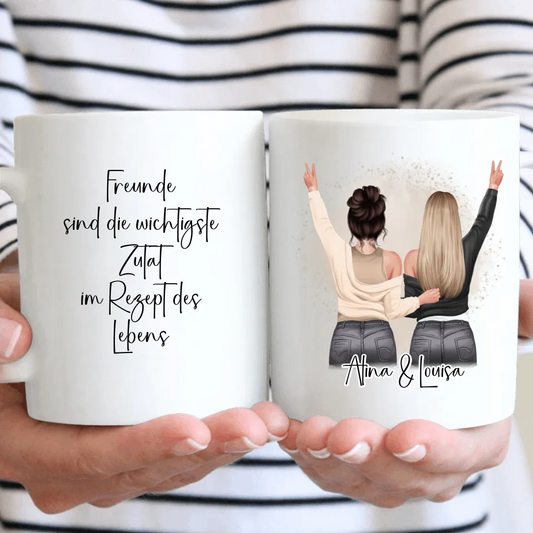 Freunde
sind die wichtigste
Zutat
im Rezept des
Lebens
Alina & Louisa